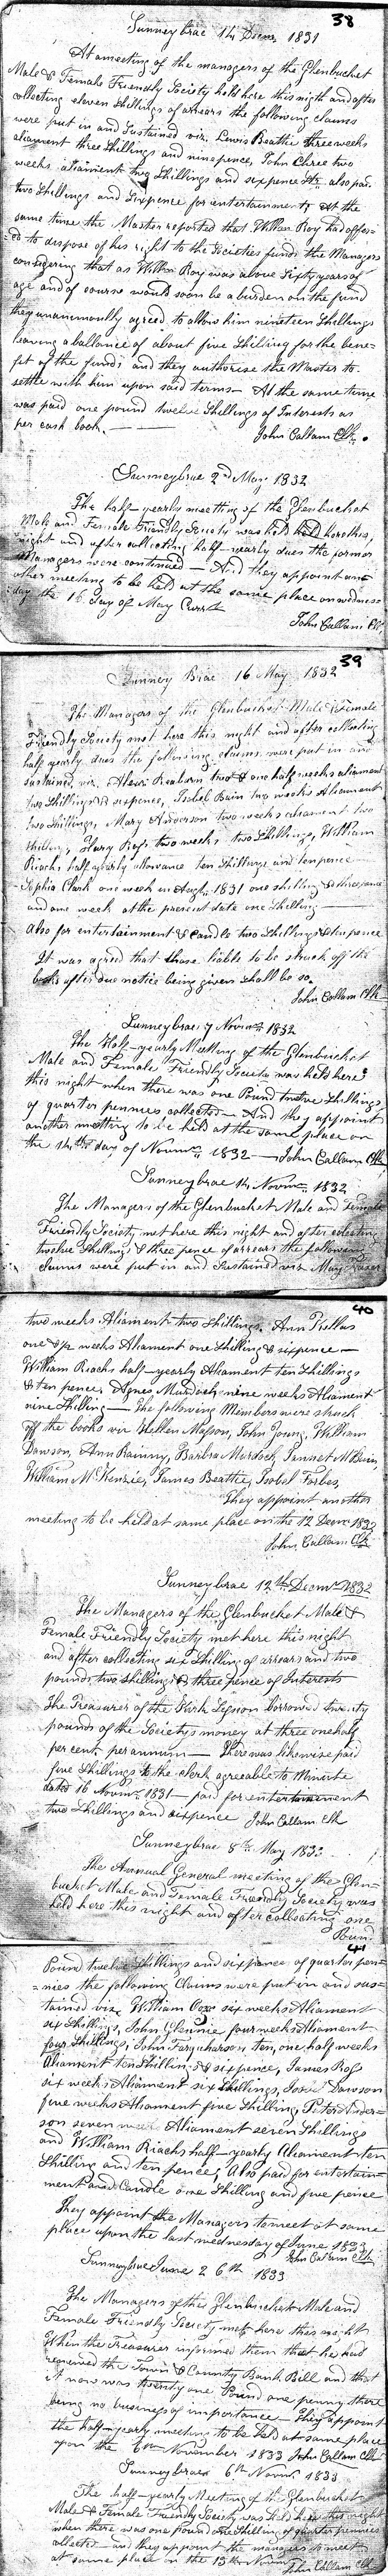 38
Sunneybrae 14 Decmr 1831
At a meeting of the managers of the Glenbucket
Male & Female Friendly Society held here this nigth and after
collecting eleven shillings of arears the following claims
were put in and Sustained viz. Lewis Beattie three weeks
aliament three shillings and ninepence, John Chree two
weeks aliament two Shillings and sixpence also paid
two shillings and sixpence for entertainment, At the
same time the Master reported that William Roy had offer-
ed to dispose of his right to the Societies funds the Managers
considering that as William Roy was above Sixty years of
age and of course would soon be a burden on the fund
they unanimously agreed to allow him nineteen Shillings
leaving a ballance of about five Shilling for the bene-
fit of the funds and they authorise the Master to
settle with him upon said terms — At the same time
was paid one pound twelve Shillings of Interests as
per cash book. —
John Callam Clk.
Sunneybrae 2nd May 1832
The half-yearly meeting of the Glenbucket
Male and Female Friendly Society was held held here this
night and after collecting half-yearly dues the former
Managers were continued — And they appoint ano-
other meeting to be held at the same place on wednes-
day the 16 day of May Currt
John Callam Clk
39
Sunney Brae 16 May 1832
The Managers of the Glenbucket Male & Female
Friendly Society met here this night and after collecting
half yearly dues the following claims were put in and
sustained, viz. two & one half weeks aliament
two Shillings & sixpence, Isobel Bain two weeks Aliament
two shillings, Mary Anderson two weeks aliament two
shilling, Harry Roy two weeks two Shillings, William
Riachs half yearly allowance ten Shillings and tenpence
Sophia Clark one week in Augt. 1831 one shilling & threepence
and one week at the present date one Shilling —
Also for entertainment & candle two Shillings & tenpence
It was agreed that those liable to be struck off the
books after due notice being given shall be so.
John Callam Clk
Sunneybrae 7 Novmr 1832
The Half-yearly Meeting of the Glenbucket
Male and Female Friendly Society was held here
this night when there was one Pound twelve Shillings
of quarter pennies collected — And they appoint
another meeting to be held at the same place on
the 14th day of Novmr. 1832 — John Callam Clk
Sunneybrae 14 Novmr. 1832
The Managers of the Glenbucket Male and Female
Friendly Society met here this night and after collecting
twelve Shillings & three pence of arears the following
claims were put in and Sustained viz May Fraser
40
two weeks Aliament two Shillings. Ann Kellas
one & ½ weeks Aliament one Shilling & sixpence —
William Riachs half-yearly Aliament ten Shillings
& ten pence, Agnes Murdoch nine weeks Aliament
nine Shilling — The following Members were struck
off the books viz Hellen Masson, John Young, William
Dawson, Ann Rainny, Barbra Murdoch, Jannet McBain,
William McKenzie, James Beattie, Isobel Forbes,
They appoint another
meeting to be held at same place on the 12 Decmr 1832
John Callam Clk
Sunneybrae 12th Decmr 1832
The Managers of the Glenbucket Male &
Female Friendly Society met here this night
and after collecting six Shilling of arears and two
pounds two Shillings & three pence of Interests
The Treasurer of the Kirk Session borrowed twenty
pounds of the Society's money at three one half
per cent. per annum — There was likewise paid
five Shillings to the clerk agreeable to Minute
dated 16 Novmr. 1831 — paid for entertainment
two Shillings and sixpence John Callam Clk
Sunneybrae 8th May 1833
The Annual General meeting of the Glen-
bucket Male and Female Friendly Society was
held here this night and after collecting one
Pound
41
Pound twelve Shillings and sixpence of quarter pen-
=nies the following Claims were put in and sus-
tained viz. William six weeks Aliament
six Shillings, John Glennie four weeks Aliament
four Shillings, John Farquharson ten, one half weeks
Aliament ten Shillings & sixpence, James Ross
six weeks Aliament six Shillings, Dawson
five weeks Aliament five Shilling, Peter Ander-
son seven weeks Aliament seven Shillings
and William Riachs half-yearly Aliament ten
Shilling and ten pence, Also paid for entertain-
ment and Candle one Shilling and five pence
They appoint the Managers to meet at same
place upon the last wednesday of June 1833
John Callam Clk
Sunneybrae June 26th 1833
The Managers of the Glenbucket Male and
Female Friendly Society met here this night
When the Treasurer informed them that he had
renewed the Town & County Bank Bill and that
it now was twenty one Pound one penny there
being no business of importance — They appoint
the half-yearly meeting to be held at same place
upon the 6th November 1833 John Callam Clk
Sunneybrae 6th Novmr. 1833
The half-yearly Meeting of the Glenbucket
Male & Female Friendly Society was held here this night
when there was one pound one Shilling of quarter pennies
collected — and they appoint the managers to meet
at same place on the 13th Novmr
John Callam Clk